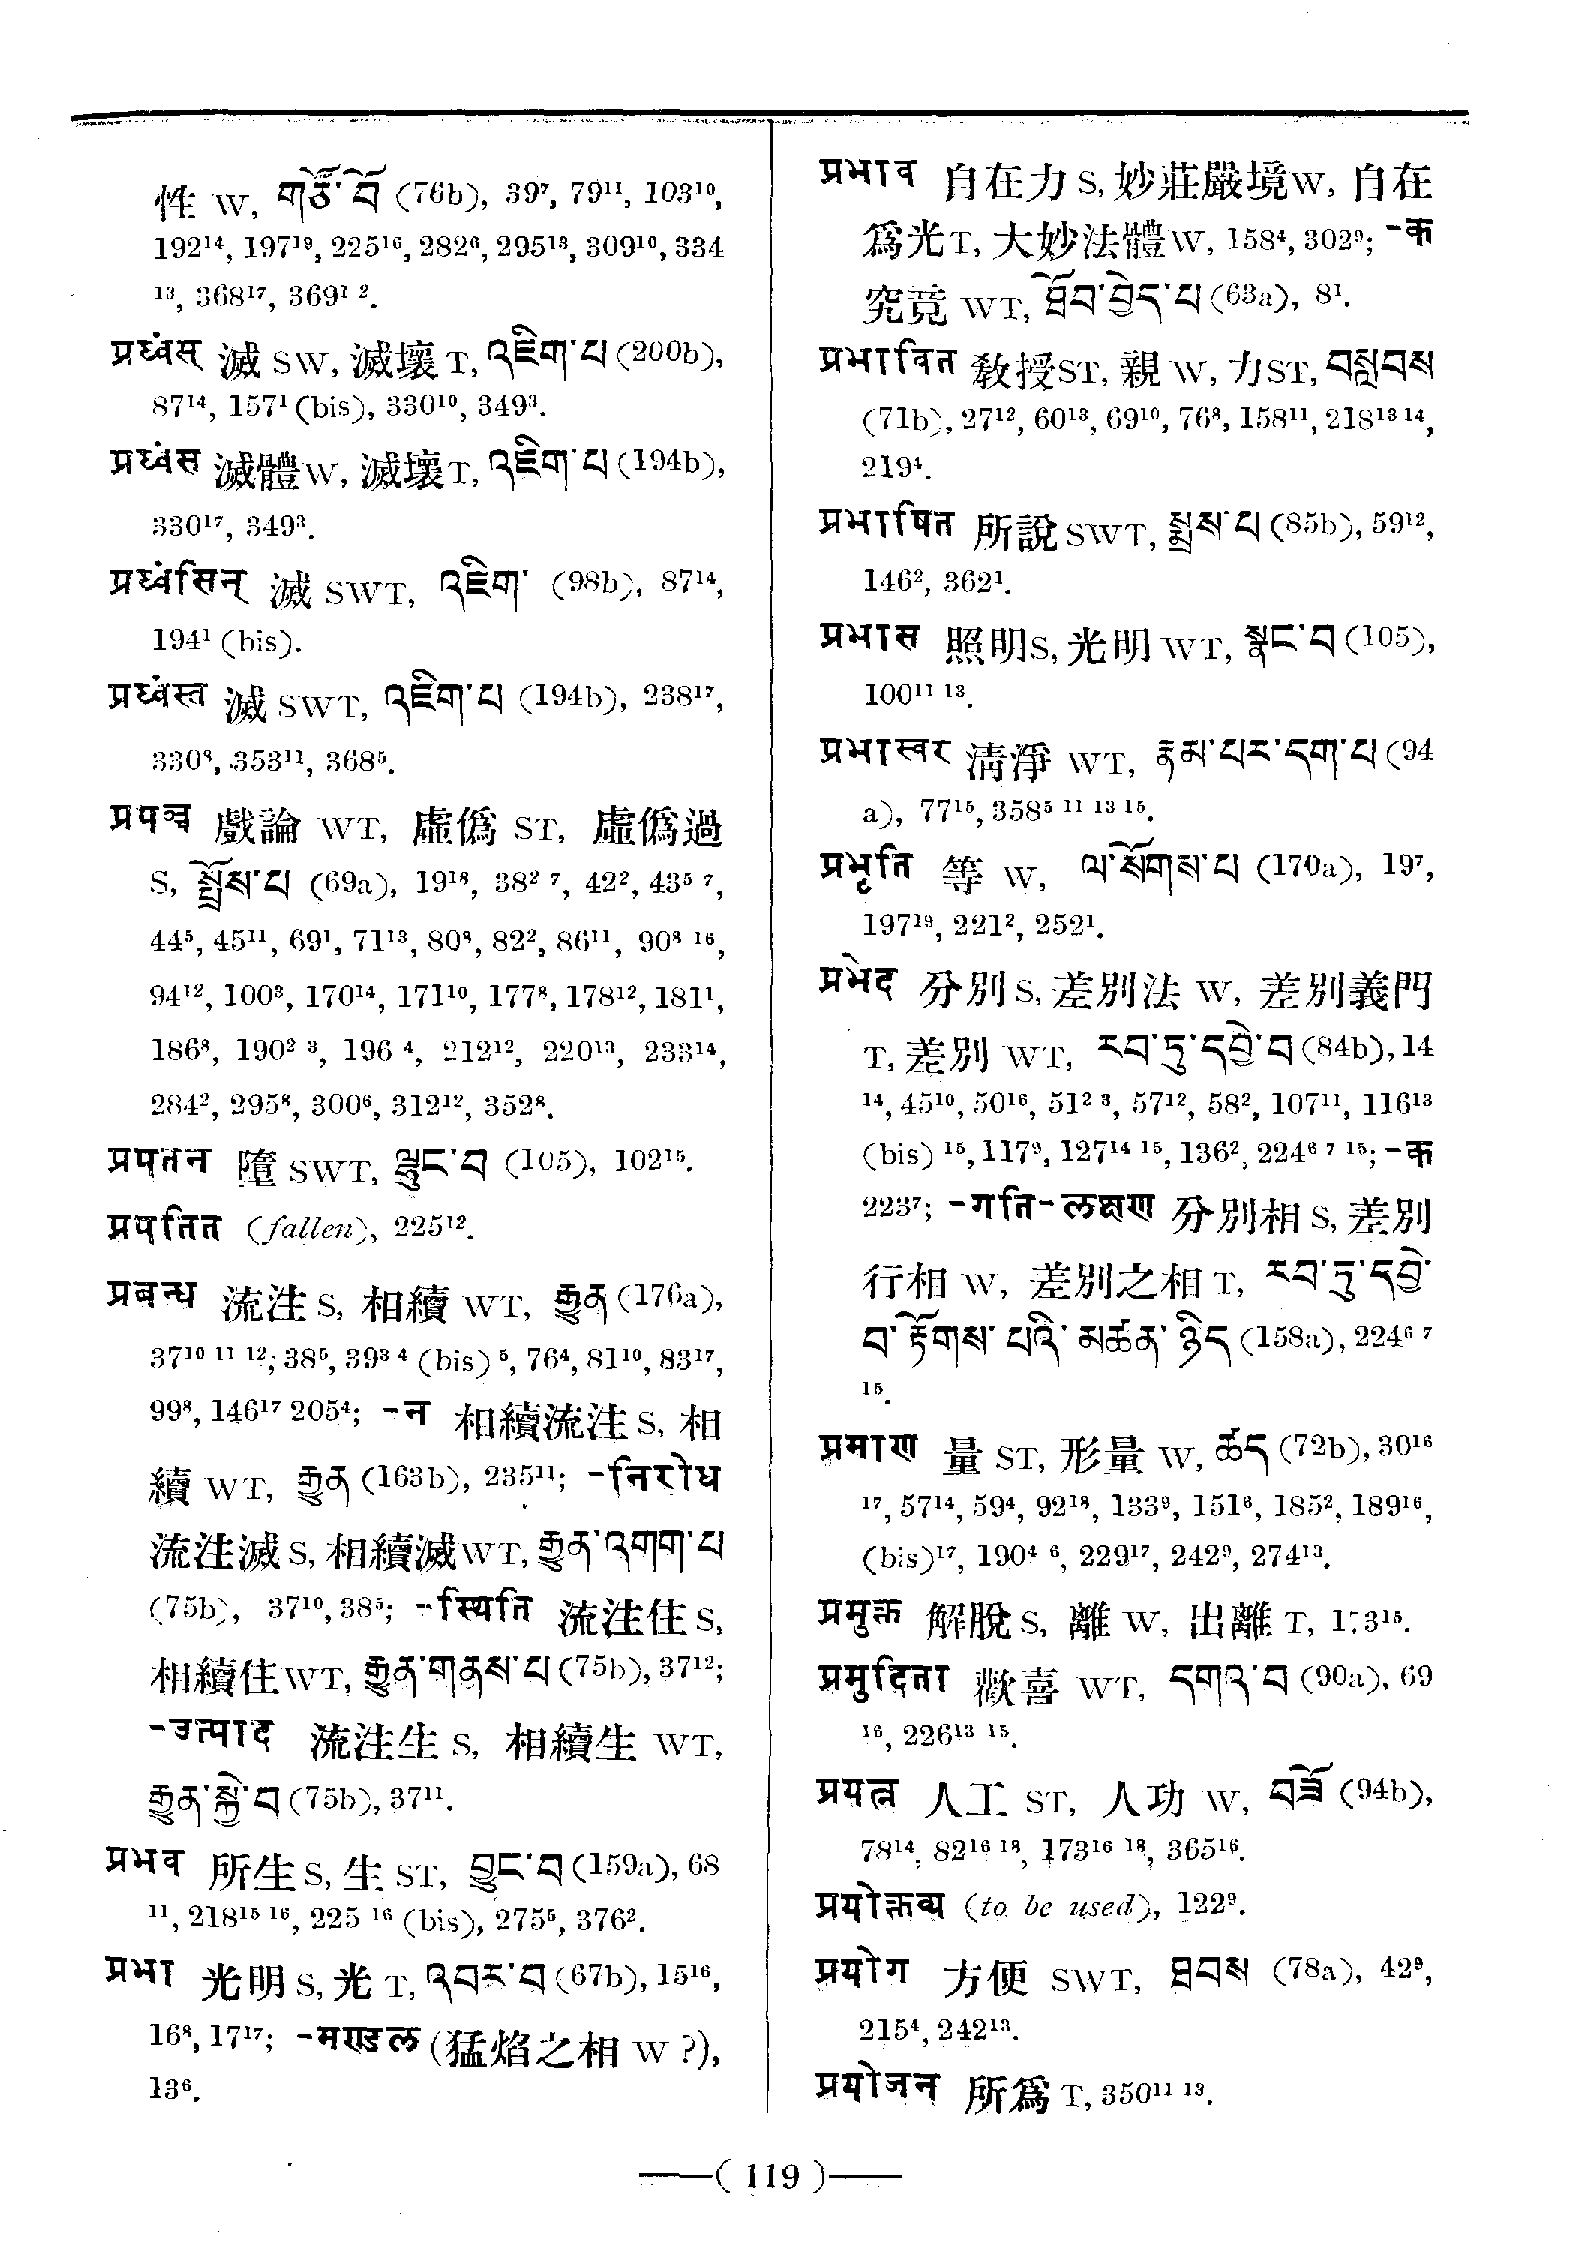 性 W, གཙོ་བོ (76b), 39⁷, 79¹¹, 103¹⁰,
192¹⁴, 197¹⁹, 225¹⁶, 282⁶, 295¹³, 309¹⁰, 334
¹³, 368¹⁷, 369¹ ².
प्रध्वंस् 滅 SW, 滅壞 T, འཇིག་པ (200b),
87¹⁴, 157¹ (bis), 330¹⁰, 349³.
प्रध्वंस 滅體 W, 滅壞 T, འཇིག་པ (194b),
330¹⁷, 349³.
प्रध्वंसिन् 滅 SWT, འཇིག་ (98b), 87¹⁴,
194¹ (bis).
प्रध्वंस्त 滅 SWT, འཇིག་པ (194b), 238¹⁷,
330⁸, 353¹¹, 368⁵.
प्रपञ्च 戲論 WT, 虛僞 ST, 虛僞過
S, སྤྲོས་པ (69a), 19¹⁸, 38² ⁷, 42², 43⁵ ⁷,
44⁵, 45¹¹, 69¹, 71¹³, 80⁸, 82², 86¹¹, 90⁸ ¹⁶,
94¹², 100³, 170¹⁴, 171¹⁰, 177⁸, 178¹², 181¹,
186⁸, 190² ³, 196 ⁴, 212¹², 220¹³, 233¹⁴,
284², 295⁸, 300⁶, 312¹², 352⁸.
प्रपतन 墮 SWT, ལྷུང་བ (105), 102¹⁵.
प्रपतित (fallen), 225¹².
प्रबन्ध 流注 S, 相續 WT, རྒྱུན (176a),
37¹⁰ ¹¹ ¹²; 38⁵, 39³ ⁴ (bis) ⁵, 76⁴, 81¹⁰, 83¹⁷,
99⁸, 146¹⁷ 205⁴; -न 相續流注 S, 相
續 WT, རྒྱུན (163b), 235¹¹; -निरोध
流注滅 S, 相續滅 WT, རྒྱུན་འགག་པ
(75b), 37¹⁰, 38⁵; -स्थिति 流注住 S,
相續住 WT, རྒྱུན་གནས་པ (75b), 37¹²;
-उत्पाद 流注生 S, 相續生 WT,
རྒྱུན་སྐྱེ་བ (75b), 37¹¹.
प्रभव 所生 S, 生 ST, བྱུང་བ (159a), 68
¹¹, 218¹⁵ ¹⁶, 225 ¹⁶ (bis), 275⁵, 376².
प्रभा 光明 S, 光 T, འབར་བ (67b), 15¹⁶,
16⁸, 17¹⁷; -मण्डल (猛焰之相 W ?),
13⁶.
प्रभाव 自在力 S, 妙莊嚴境 W, 自在
爲光 T, 大妙法體 W, 158⁴, 302⁹; -क
究竟 WT, ཐོབ་བྱེད་པ (63a), 8¹.
प्रभावित 敎授 ST, 親 W, 力 ST, བསླབས
(71b), 27¹², 60¹³, 69¹⁰, 76⁸, 158¹¹, 218¹³ ¹⁴,
219⁴.
प्रभाषित 所說 SWT, སྨྲས་པ (85b), 59¹²,
146², 362¹.
प्रभास 照明 S, 光明 WT, སྣང་བ (105),
100¹¹ ¹³.
प्रभास्वर 淸淨 WT, རྣམ་པར་དག་པ (94
a), 77¹⁵, 358⁵ ¹¹ ¹³ ¹⁵.
प्रभृति 等 W, ལ་སོགས་པ (170a), 19⁷,
197¹⁹, 221², 252¹.
प्रभेद 分別 S, 差別法 W, 差別義門
T, 差別 WT, རབ་ཏུ་དབྱེ་བ (84b), 14
¹⁴, 45¹⁰, 50¹⁶, 51² ³, 57¹², 58², 107¹¹, 116¹³
(bis) ¹⁵, 117⁹, 127¹⁴ ¹⁵, 136², 224⁶ ⁷ ¹⁵; -क
223⁷; -गति-लक्षण 分別相 S, 差別
行相 W, 差別之相 T, རབ་ཏུ་དབྱེ་
བ་ རྟོགས་ པའི་ མཚན་ ཉིད (158a), 224⁶ ⁷
¹⁵.
प्रमाण 量 ST, 形量 W, ཚད (72b), 30¹⁶
¹⁷, 57¹⁴, 59⁴, 92¹⁸, 133⁹, 151⁶, 185², 189¹⁶,
(bis)¹⁷, 190⁴ ⁶, 229¹⁷, 242⁹, 274¹³.
प्रमुक्त 解脫 S, 離 W, 出離 T,
प्रमुदिता 歡喜 WT, དགའ་བ (90a), 69
¹⁶, 226¹³ ¹⁵.
प्रयत्न 人工 ST, 人功 W, བཟོ (94b),
78¹⁴, 82¹⁶ ¹⁸, 173¹⁶ ¹⁸, 365¹⁶.
प्रयोक्तव्य (to be used), 122⁹.
प्रयोग 方便 SWT, ཐབས (78a), 42⁹,
215⁴, 242¹³.
प्रयोजन 所爲 T, 350¹¹ ¹³.
—( 119 )—